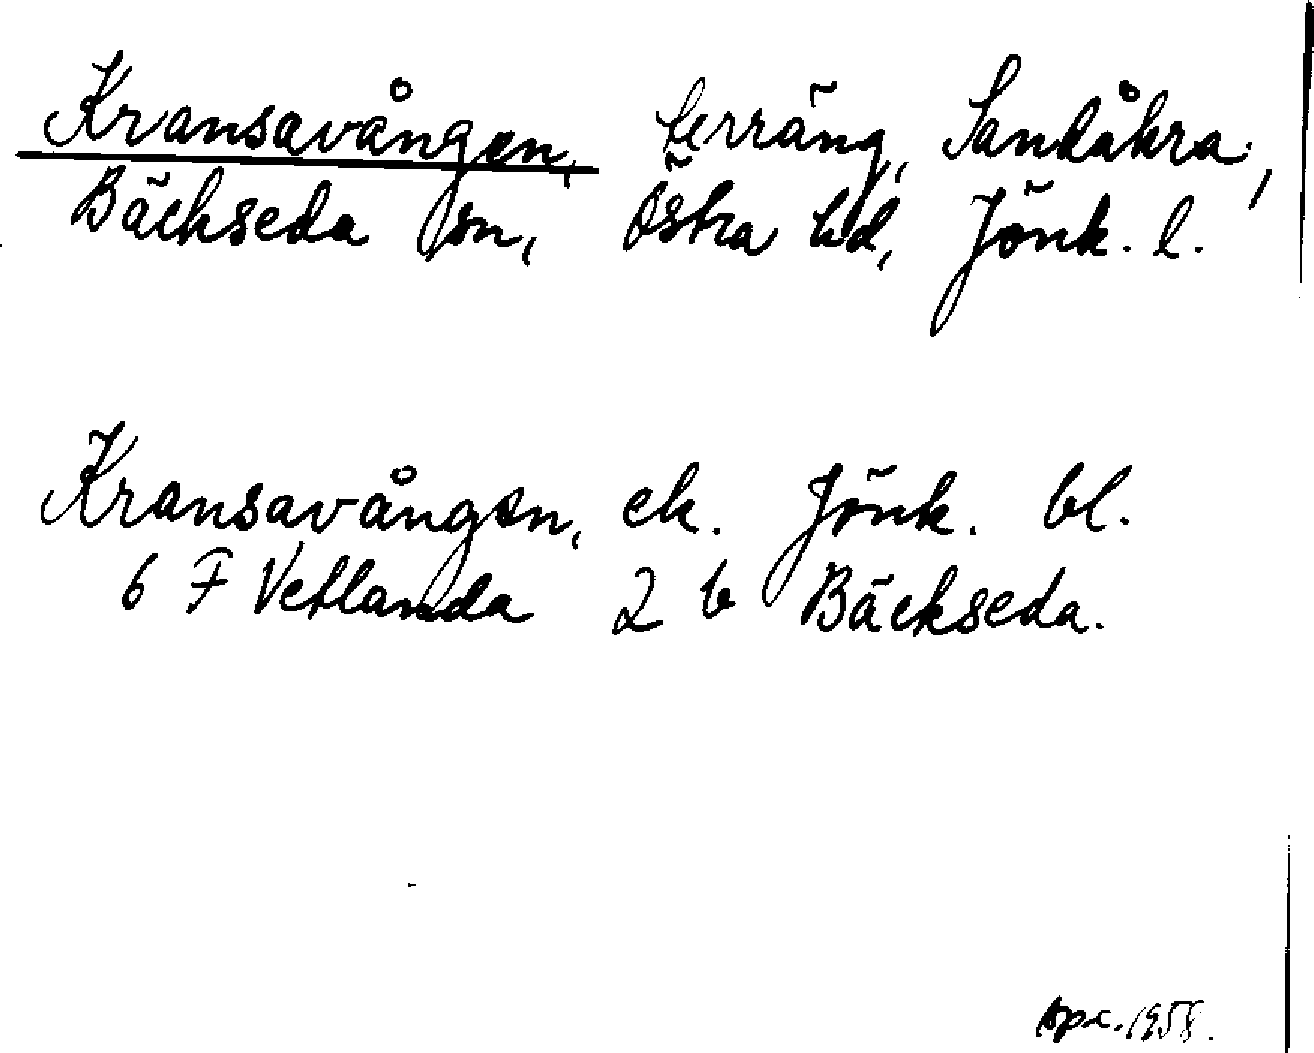 Kransavången, terräng, Sandåkra,
Bäckseda sn, Östra hd, Jönk. l.
Kransavången, ek. Jönk. bl.
6 F Vetlanda 2 b Bäckseda.
1958.